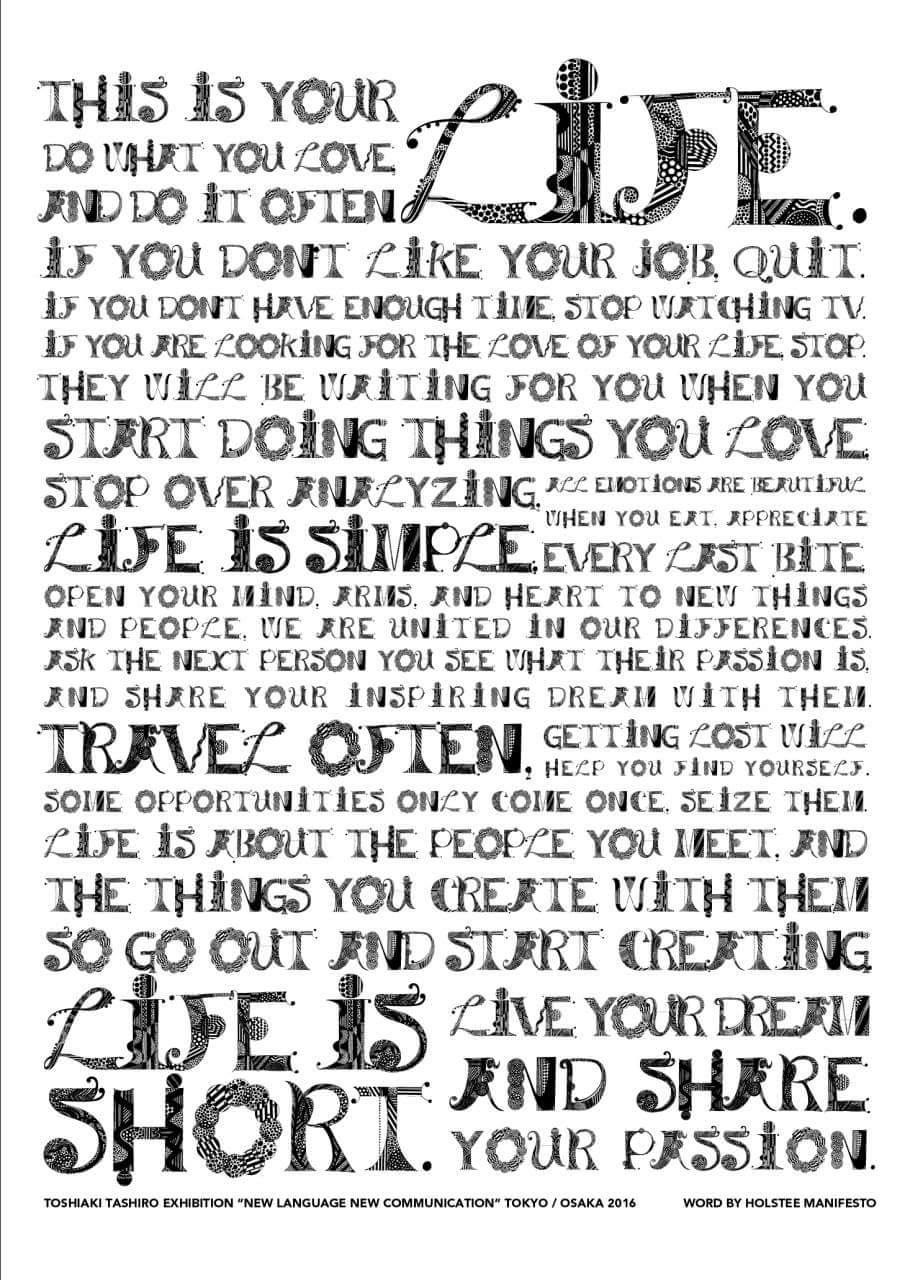 THIS IS YOUR LIFE.
DO WHAT YOU LOVE,
AND DO IT OFTEN.
IF YOU DON'T LIKE YOUR JOB, QUIT.
IF YOU DON'T HAVE ENOUGH TIME, STOP WATCHING TV.
IF YOU ARE LOOKING FOR THE LOVE OF YOUR LIFE, STOP.
THEY WILL BE WAITING FOR YOU WHEN YOU
START DOING THINGS YOU LOVE.
STOP OVER ANALYZING,
LIFE IS SIMPLE.
ALL EMOTIONS ARE BEAUTIFUL.
WHEN YOU EAT, APPRECIATE
EVERY LAST BITE.
OPEN YOUR MIND, ARMS, AND HEART TO NEW THINGS
AND PEOPLE, WE ARE UNITED IN OUR DIFFERENCES.
ASK THE NEXT PERSON YOU SEE WHAT THEIR PASSION IS,
AND SHARE YOUR INSPIRING DREAM WITH THEM.
TRAVEL OFTEN,
GETTING LOST WILL
HELP YOU FIND YOURSELF.
SOME OPPORTUNITIES ONLY COME ONCE, SEIZE THEM.
LIFE IS ABOUT THE PEOPLE YOU MEET, AND
THE THINGS YOU CREATE WITH THEM
SO GO OUT AND START CREATING.
LIFE IS
SHORT.
LIVE YOUR DREAM
AND SHARE
YOUR PASSION.
TOSHIAKI TASHIRO EXHIBITION "NEW LANGUAGE NEW COMMUNICATION" TOKYO / OSAKA 2016
WORD BY HOLSTEE MANIFESTO